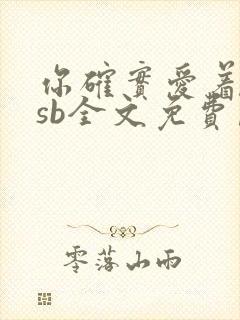 你確實愛着
sb全文免費
零落山雨